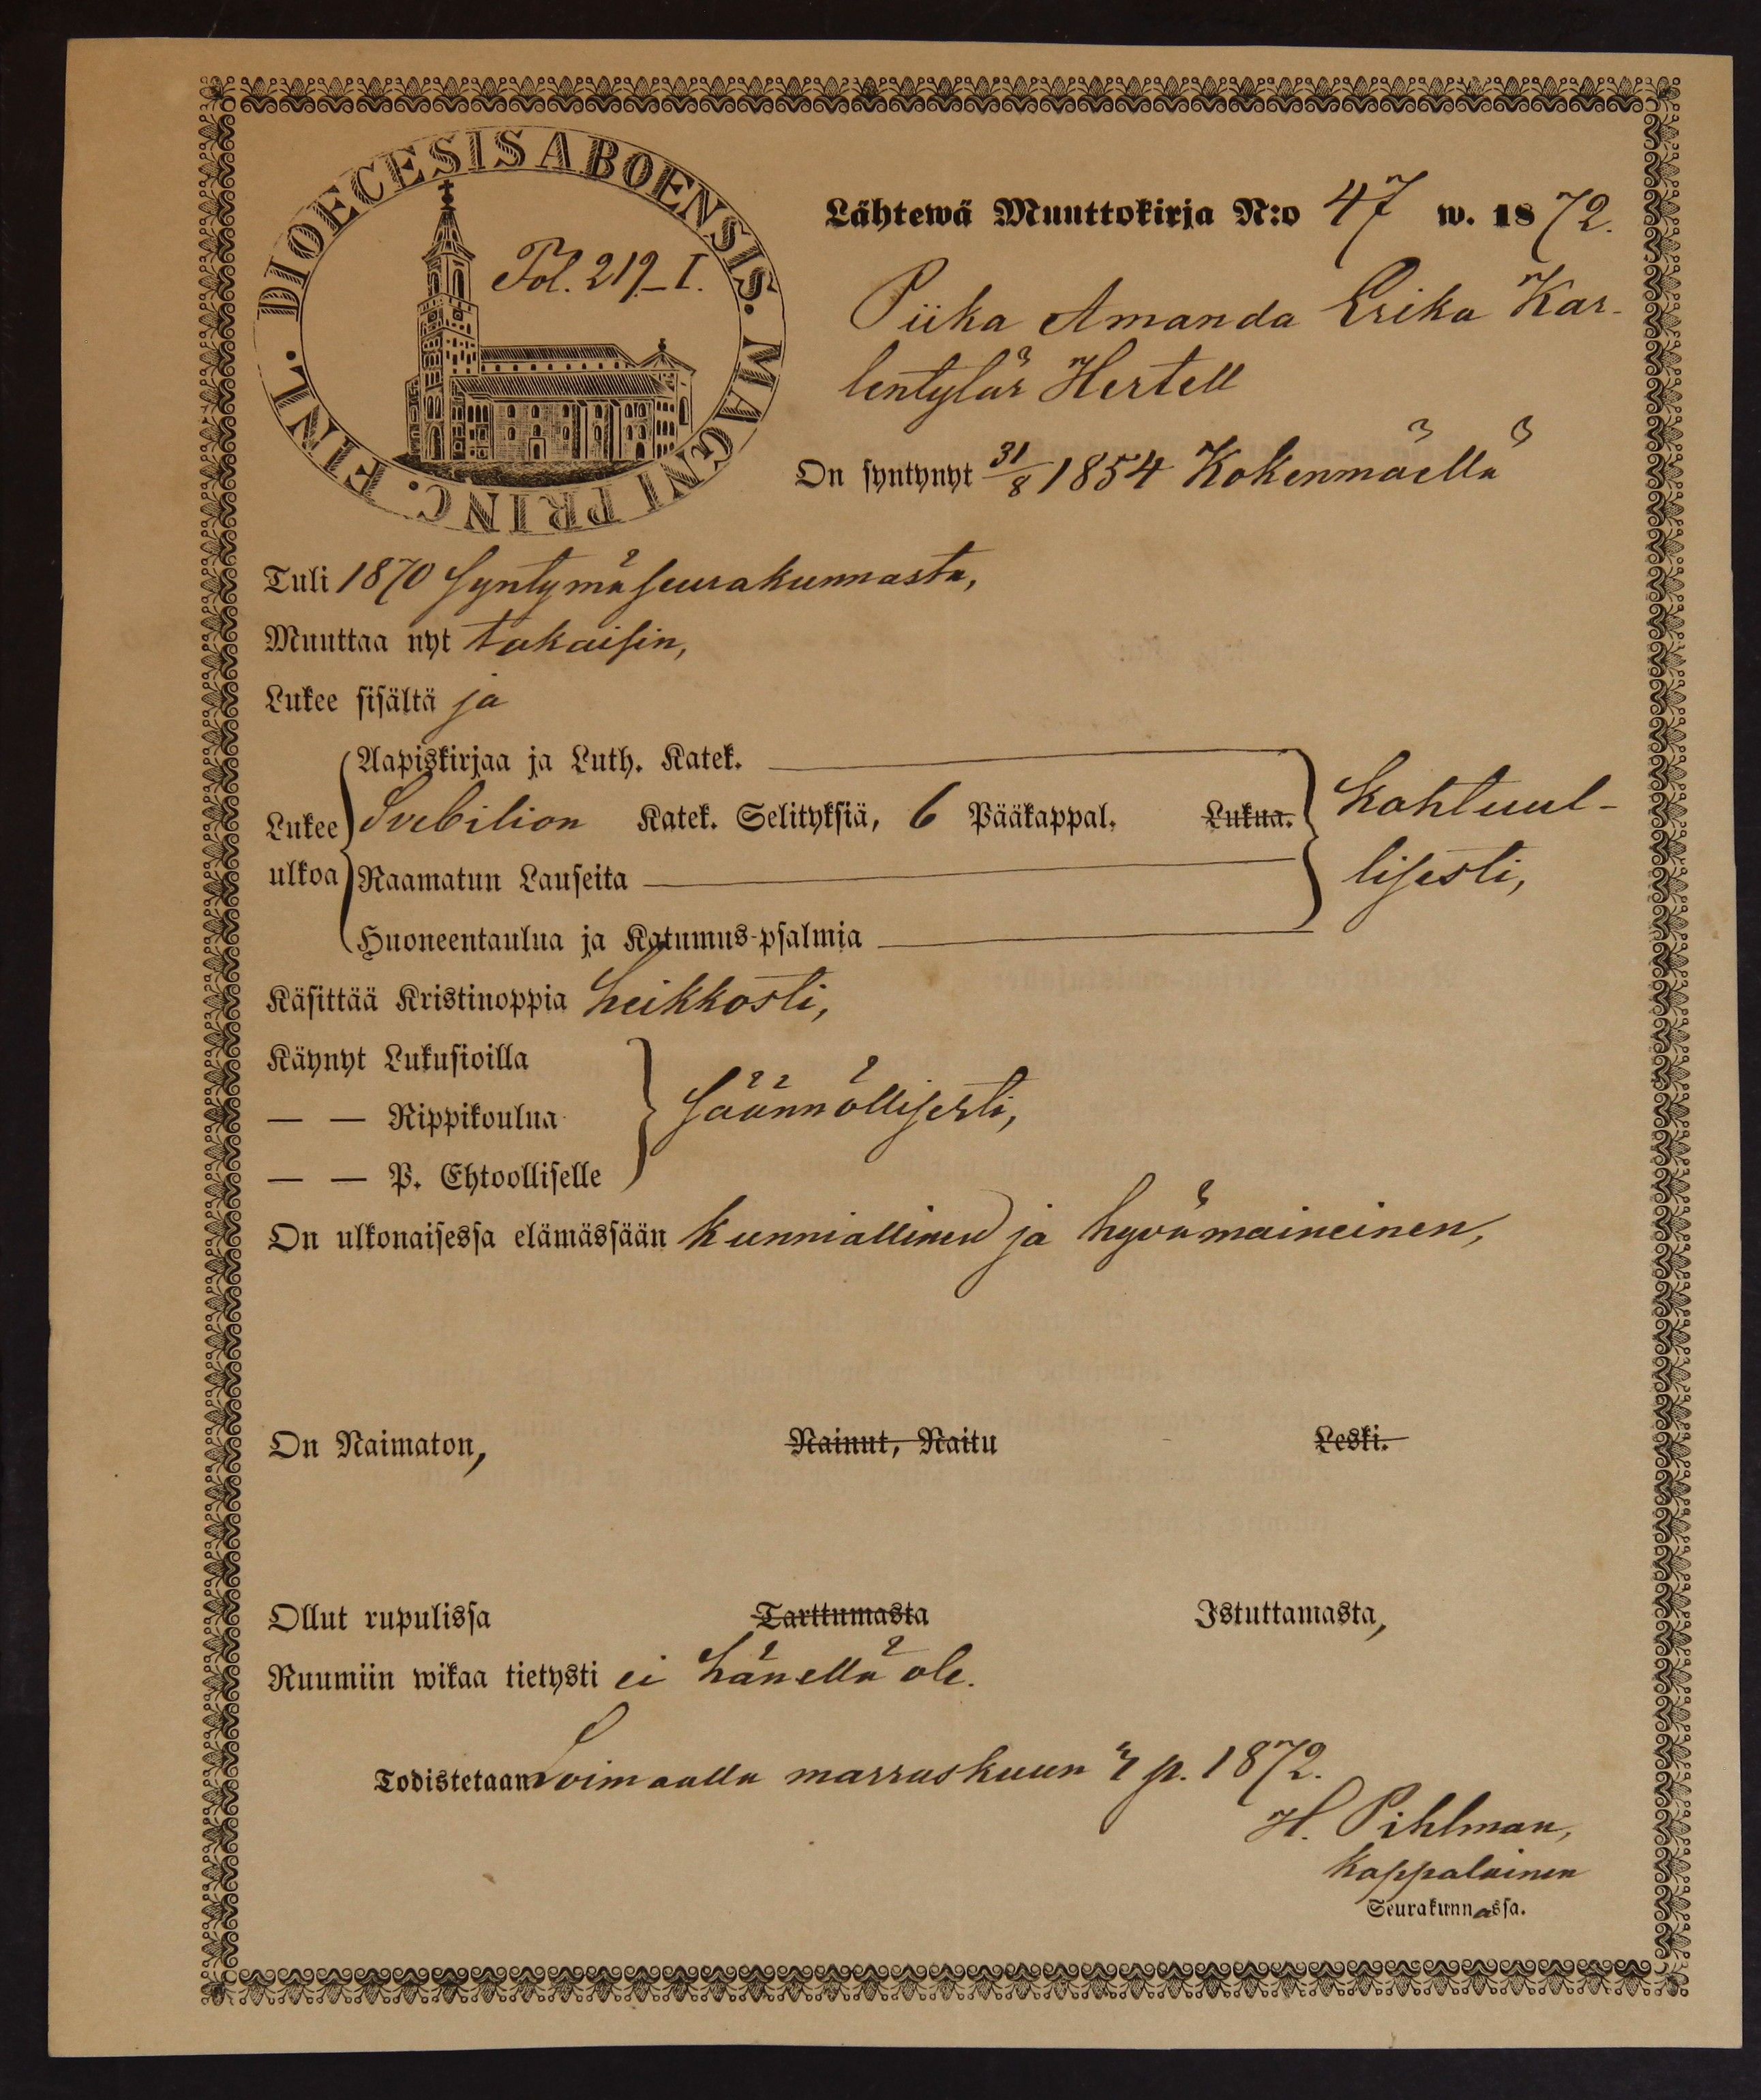 DIOECESIS ABOENSIS. MAGNI PRINC. FINL.
Fol. 219.–I.
Lähtewä Muuttokirja N:o 47 w. 1872.
Piika Amanda Erika Kar-
lentytär Hertell
On syntynyt 31/8 1854 Kokenmäellä
Tuli 1870 syntymäseurakunnasta,
Muuttaa nyt takaisin,
Lukee sisältä ja
Aapiskirjaa ja Luth. Katek.
Lukee Svebilion Katek. Selityksiä, 6 Pääkappal. Lukua. kohtuul-
ulkoa Raamatun Lauseita lisesti,
Huoneentaulua ja Katumus-psalmia
Käsittää Kristinoppia heikkosti,
Käynyt Lukusioilla
— — Rippikoulua säännöllisesti,
— — P. Ehtoolliselle
On ulkonaisessa elämässään kunniallinen ja hyvämaineinen,
On Naimaton, Nainut, Naitu Leski.
Ollut rupulissa Tarttumasta Istuttamasta,
Ruumiin wikaa tietysti ei hänellä ole.
Todistetaan Loimaalla marraskuun p. 1872.
H. Pihlman,
kappalainen
Seurakunnassa.